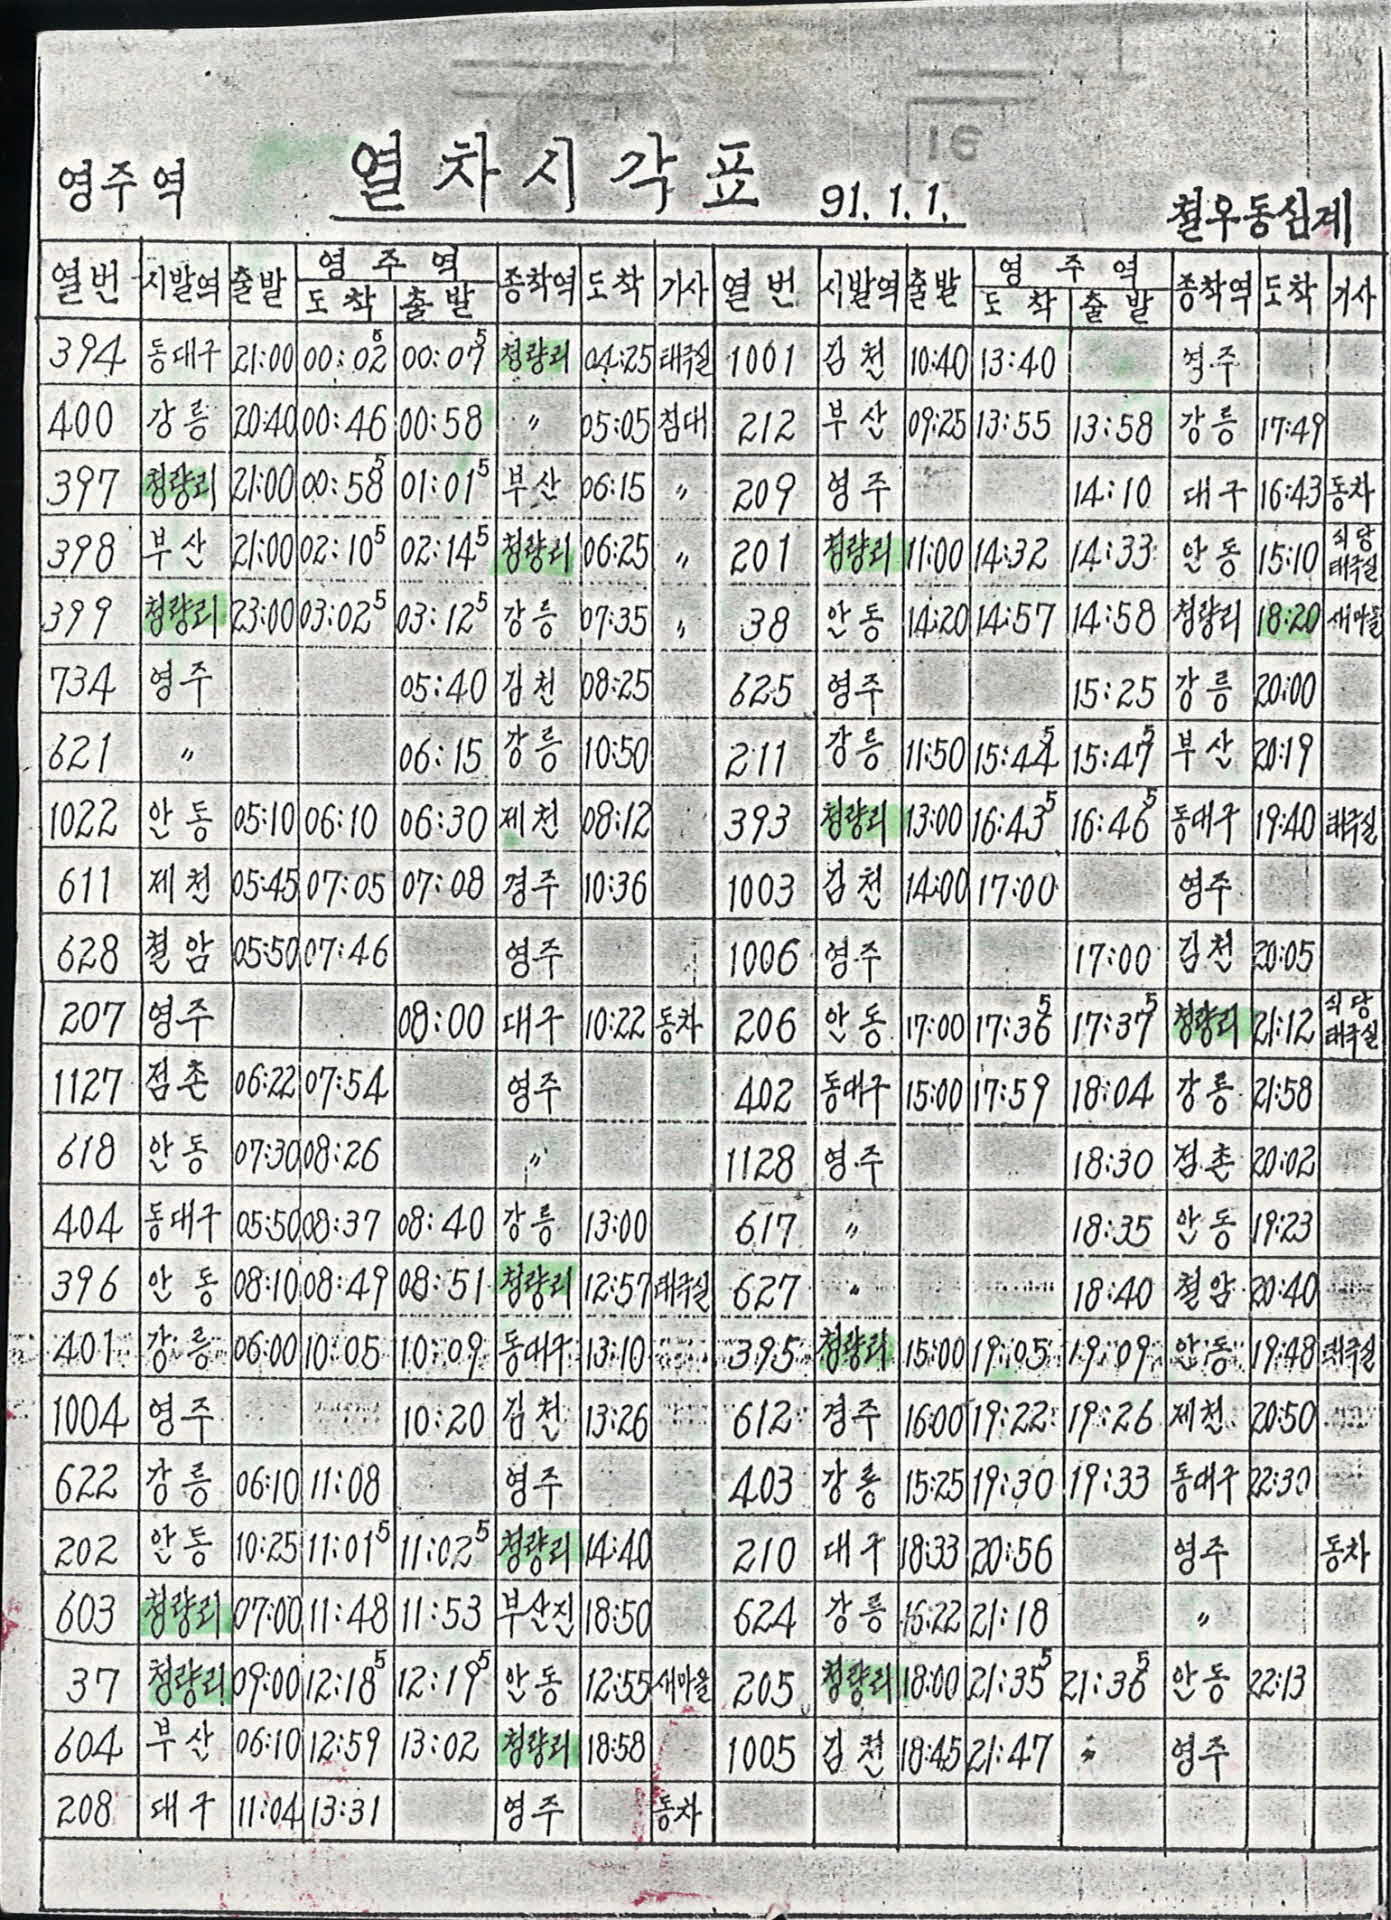 16
영주역 열차시각표 91.1.1. 철우동심계
열번 시발역 출발 영주역 도착 출발 종착역 도착 기사 열번 시발역 출발 영주역 도착 출발 종착역 도착 기사
394 동대구 21:00 00:02⁵ 00:07⁵ 청량리 04:25 태극실 1001 김천 10:40 13:40 영주
400 강릉 20:40 00:46 00:58 〃 05:05 침대 212 부산 09:25 13:55 13:58 강릉 17:49
397 청량리 21:00 00:58⁵ 01:01⁵ 부산 06:15 〃 209 영주 14:10 대구 16:43 동차
398 부산 21:00 02:10⁵ 02:14⁵ 청량리 06:25 〃 201 청량리 11:00 14:32 14:33 안동 15:10 식당 태극실
399 청량리 23:00 03:02⁵ 03:12⁵ 강릉 07:35 〃 38 안동 14:20 14:57 14:58 청량리 18:20 새마을
734 영주 05:40 김천 08:25 625 영주 15:25 강릉 20:00
621 〃 06:15 강릉 10:50 211 강릉 11:50 15:44⁵ 15:47⁵ 부산 20:19
1022 안동 05:10 06:10 06:30 제천 08:12 393 청량리 13:00 16:43⁵ 16:46⁵ 동대구 19:40 태극실
611 제천 05:45 07:05 07:08 경주 10:36 1003 김천 14:00 17:00 영주
628 철암 05:50 07:46 영주 1006 영주 17:00 김천 20:05
207 영주 08:00 대구 10:22 동차 206 안동 17:00 17:36⁵ 17:37⁵ 청량리 21:12 식당 태극실
1127 점촌 06:22 07:54 영주 402 동대구 15:00 17:59 18:04 강릉 21:58
618 안동 07:30 08:26 〃 1128 영주 18:30 점촌 20:02
404 동대구 05:50 08:37 08:40 강릉 13:00 617 〃 18:35 안동 19:23
396 안동 08:10 08:49 08:51 청량리 12:57 태극실 627 〃 18:40 철암 20:40
401 강릉 06:00 10:05 10:09 동대구 13:10 395 청량리 15:00 19:05 19:09 안동 19:48 태극실
1004 영주 10:20 김천 13:26 612 경주 16:00 19:22 19:26 제천 20:50
622 강릉 06:10 11:08 영주 403 강릉 15:25 19:30 19:33 동대구 22:30
202 안동 10:25 11:01⁵ 11:02⁵ 청량리 14:40 210 대구 18:33 20:56 영주 동차
603 청량리 07:00 11:48 11:53 부산진 18:50 624 강릉 16:22 21:18 〃
37 청량리 09:00 12:18⁵ 12:19⁵ 안동 12:55 새마을 205 청량리 18:00 21:35⁵ 21:36⁵ 안동 22:13
604 부산 06:10 12:59 13:02 청량리 18:58 1005 김천 18:45 21:47 영주
208 대구 11:04 13:31 영주 동차